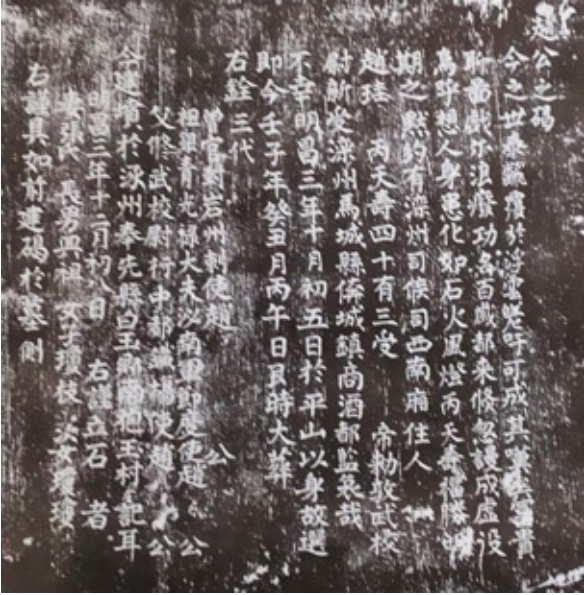 趙公之碣
今之世泰嶽攢於浮雲嗟吁可成其嘆矣富貴
聊爾戲尔浪癈功名百歲都來倏忽謾成虛設
烏乎想人身悪化如石火風燈丙天壽福勝
期之黙約有灤州司候司西南廂住人
趙珪 丙天壽四十有三受 帝勑敦武校
尉新受灤州馬城縣倴城鎮商酒都監哀哉
不幸明昌三年十月初五日於平山以身故選
即今壬子年癸丑月丙午日艮時大葬
右詮三代
曾官巖岩州刺使趙 公
祖銀青光禄大夫必南軍節度使趙 公
父修武校尉行中都 使趙 公
今建墳於涿州奉先縣白玉 村記耳
明昌三年十二月初八日 右謹立石 者
妻張氏 長男興祖 女子瓊枝 次女瓊瓊
右謹具如前建碣於墓側